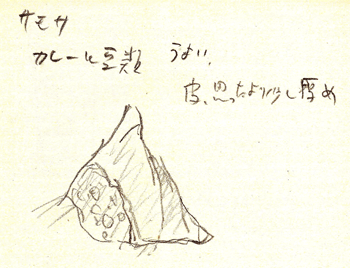 サモサ
カレーと豆類 うまい.
皮、思ったより少し厚め